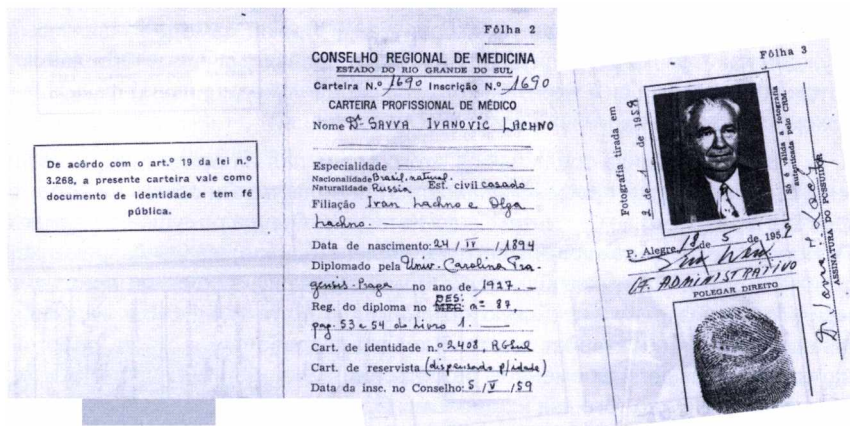 De acôrdo com o art.º 19 da lei n.º
3.268, a presente carteira vale como
documento de Identidade e tem fé
pública.
Fôlha 2
CONSELHO REGIONAL DE MEDICINA
ESTADO DO RIO GRANDE DO SUL
Carteira N.º 1690 Inscrição N.º 1690
CARTEIRA PROFISSIONAL DE MÉDICO
Nome Dr. SAVVA IVANOVIC LACHNO
Especialidade
Nacionalidade Brasil. natural.
Naturalidade Russia Est. civil casado
Filiação Ivan Lachno e Olga
Lachno.
Data de nascimento: 24 / IV / 1894
Diplomado pela Univ. Carolina Pra-
gensis - Praga no ano de 1927.
DES:
Reg. do diploma no MEC nº 87
pag. 53 e 54 do Livro 1.
Cart. de identidade n.º 2408, RGSul
Cart. de reservista (dispensado p/idade)
Data da insc. no Conselho: 5 / V / 59
Fôlha 3
Fotografia tirada em
2 de 1 de 1959
Só é válida a fotografia
autenticada pelo CRM.
P. Alegre, 18 de 5 de 1959
ADMINISTRATIVO
POLEGAR DIREITO
ASSINATURA DO POSSUIDOR